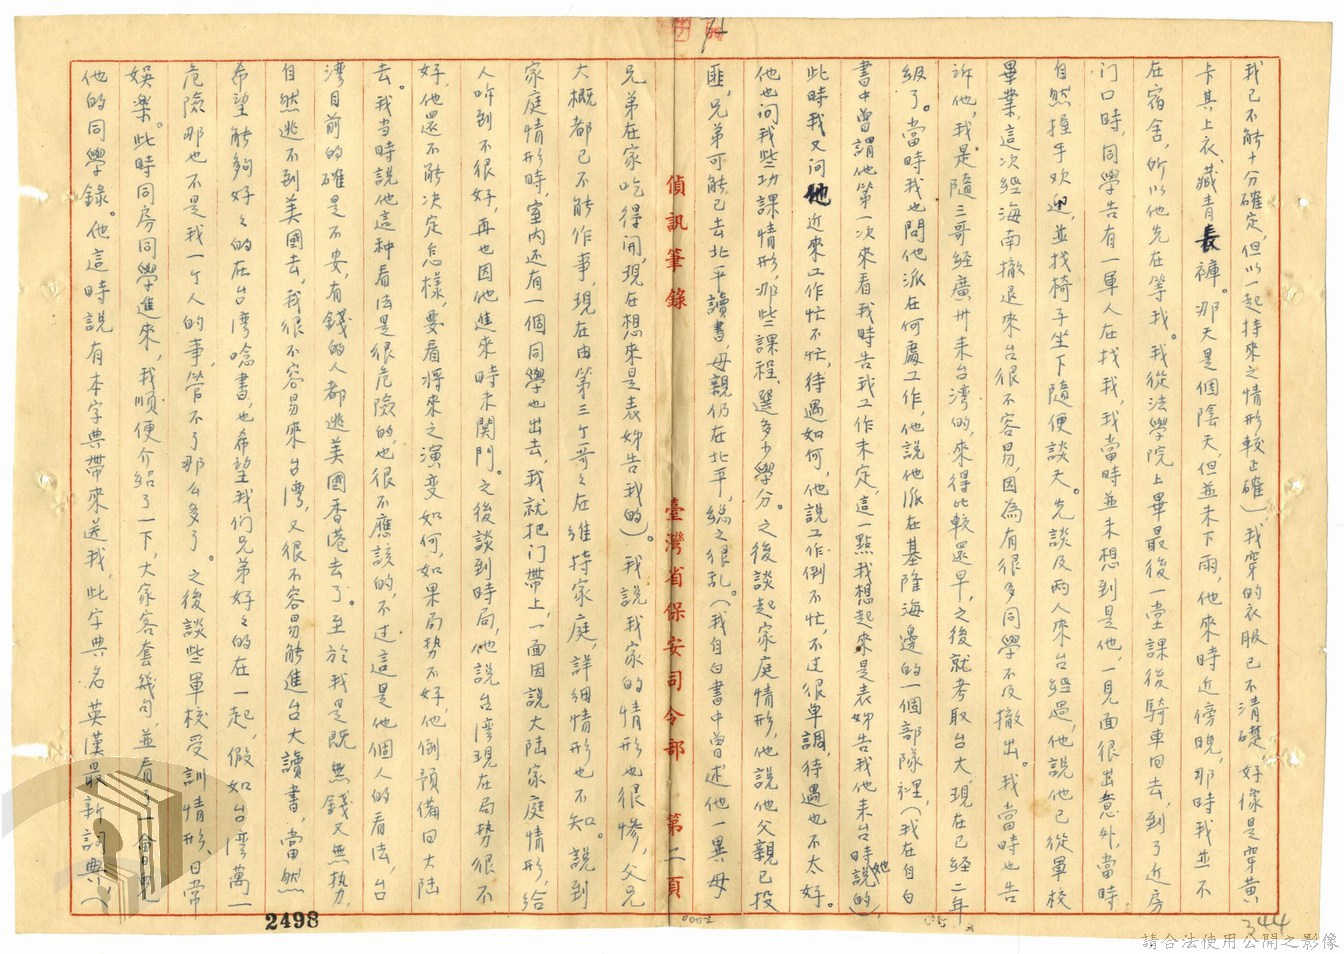 我已不能十分確定，但以一起持來之情形較正確）我穿的衣服已不清礎，好像是穿黄
卡其上衣、藏青長褲。那天是個陰天，但並未下雨，他來時近傍晚，那時我並不
在宿舍，所以他先在等我。我從法學院上畢最後一堂課後騎車回去，到了近房
门口時，同學告有一軍人在找我，我當時並未想到是他，一見面很出意外，當時
自然握手欢迎，並找椅子坐下隨便談天。先談及两人來台經過，他說他已從軍校
畢業，這次經海南撤退來台很不容易，因為有很多同學不及撤出。我當時也告
訴他，我是隨三哥經廣州来台湾的，來得比較還早，之後就考取台大，現在已經二年
級了。當時我也問他派在何處工作，他說他派在基隆海邊的一個部隊裡，（我在自白
書中曾謂他第一次來看我時告我工作未定，這一點我想起來是表姊告我他来台時她說的），
此時我又问他近來工作忙不忙，待遇如何，他説工作倒不忙，不过很单調，待遇也不太好。
他也问我些功課情形，那些課程，選多少學分。之後談起家庭情形，他說他父親已投
匪，兄弟可能已去北平讀書，母親仍在北平，總之很乱。（我自白書中曾述他一異母
兄弟在家吃得闭，現在想來是表姊告我的）。我說我家的情形也很慘，父兄
偵訊筆錄 臺灣省保安司令部 第二頁
大概都已不能作事，現在由第三个哥々在維持家庭，詳細情形也不知。說到
家庭情形時，室内还有一個同學也出去，我就把门帶上，一面因說大陆家庭情形，给
人听到不很好，再也因他進來時未関門。之後談到時局，他說台灣現在局势很不
好，他還不能决定怎樣，要看將來之演变如何，如果局势不好，他倒預備回大陆
去。我当時說他這种看法是很危險的，也很不應該的，不过這是他個人的看法，台
湾目前的確是不安，有錢的人都逃美國香港去了。至於我是既無錢又無势，
自然逃不到美國去，我很不容易來台湾，又很不容易能進台大讀書，當然
希望能夠好々的在台湾唸書也希望我们兄弟好々的在一起，假如台湾萬一
危險那也不是我一个人的事，管不了那么多了。之後談些軍校受訓情形，日常
娛樂。此時同房同學進來，我順便介紹了一下，大家客套幾句，並看了一會見
他的同學錄。他這時說有本字典帶來送我，此字典名英漢最新詞典（
2498
344
請合法使用公開之影像